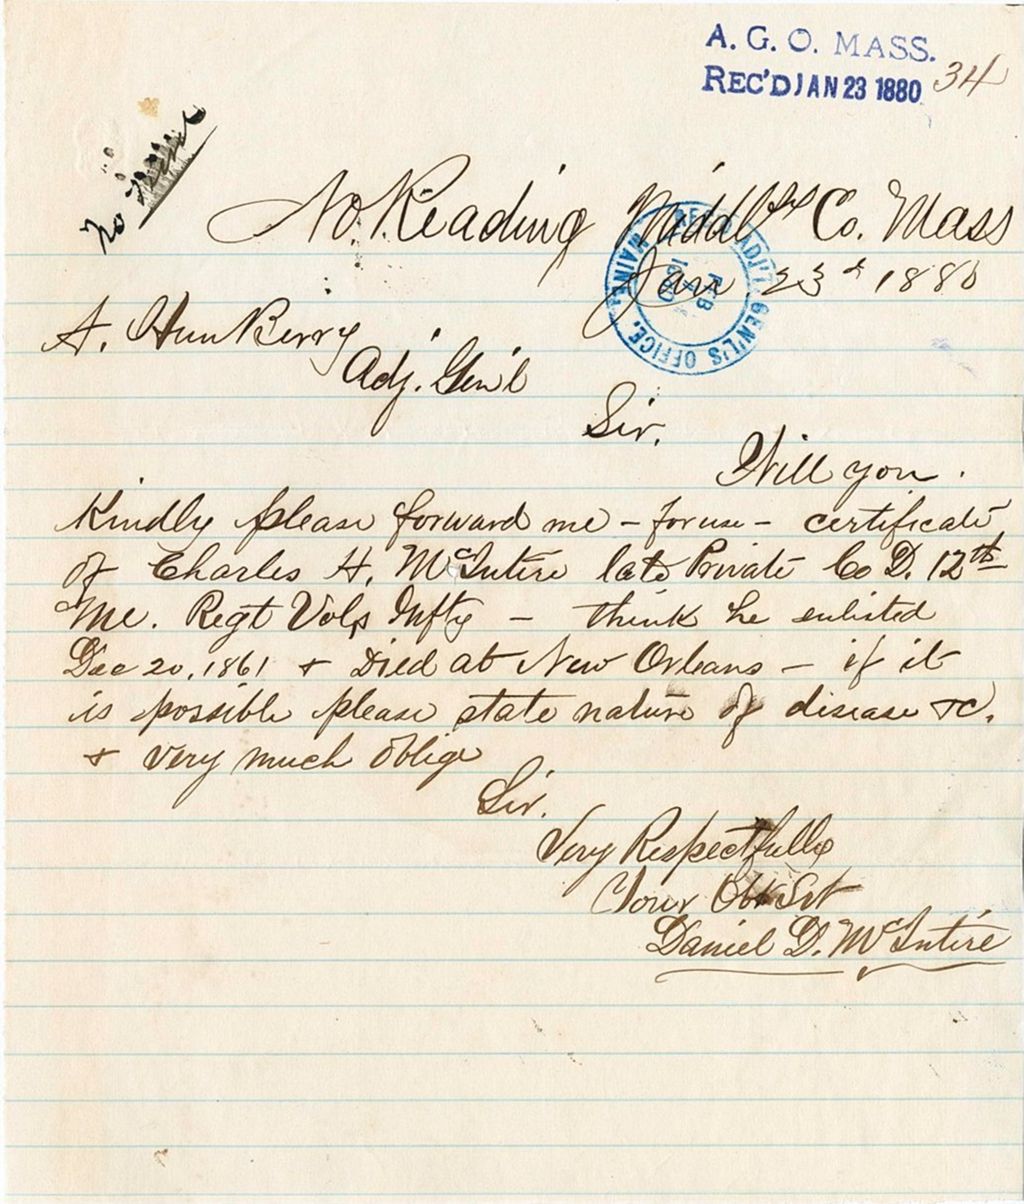 A. G. O. MASS.
REC'D JAN 23 1880 34
no
No. Reading Middlsx Co. Mass
Jan 23d 1880
REC'D ADJ'T GEN'L'S OFFICE, MAINE.
FEB
1880
A. Hun Berry
Adj. Gen'l
Sir.
Will you.
Kindly please forward me - for use - certificate
of Charles H. McIntire late Private Co D. 12th
Me. Regt Vols Infty - think he enlisted
Dec 20, 1861 & Died at New Orleans - if it
is possible please state nature of disease &c.
& very much oblige
Sir.
Very Respectfully
Your Obt Svt
Daniel D. McIntire